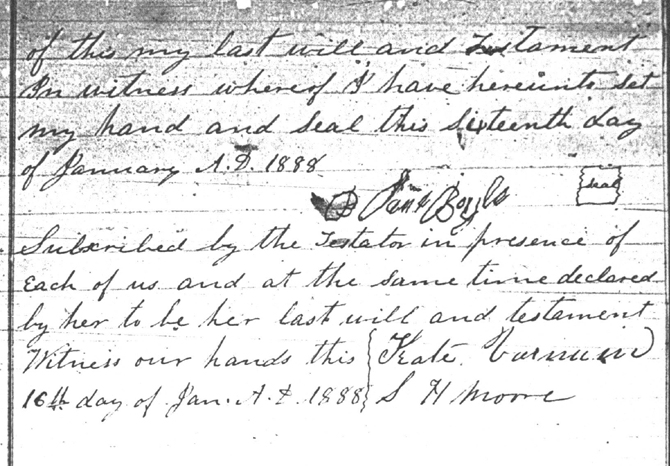 of this my last will and Testament
In witness whereof I have hereunto set
my hand and seal this sixteenth day
of January A.D. 1888
seal
Subscribed by the Testator in presence of
Each of us and at the same time declared
by her to be her last will and testament
Witness our hands this Kate
16th day of Jan. A.D. 1888 S H Moore